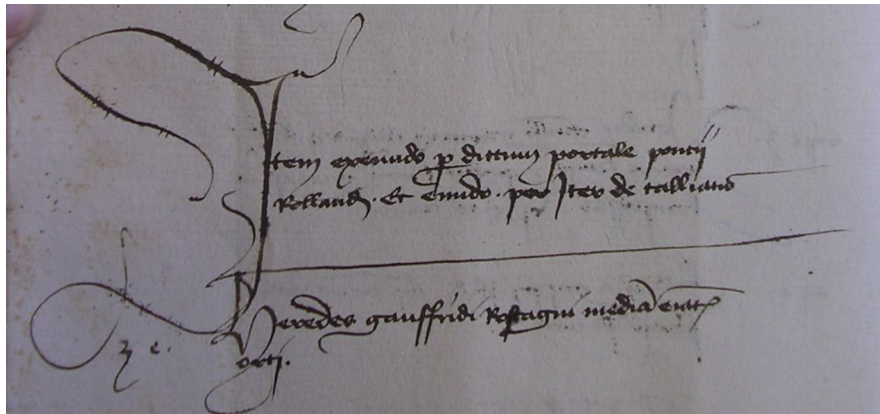 Item exeundo per dictum portale poncii
Rollandi. Et eundo. per Iter de talliatis
Heredes gauffridi Rostagni mediam eiat
orti.